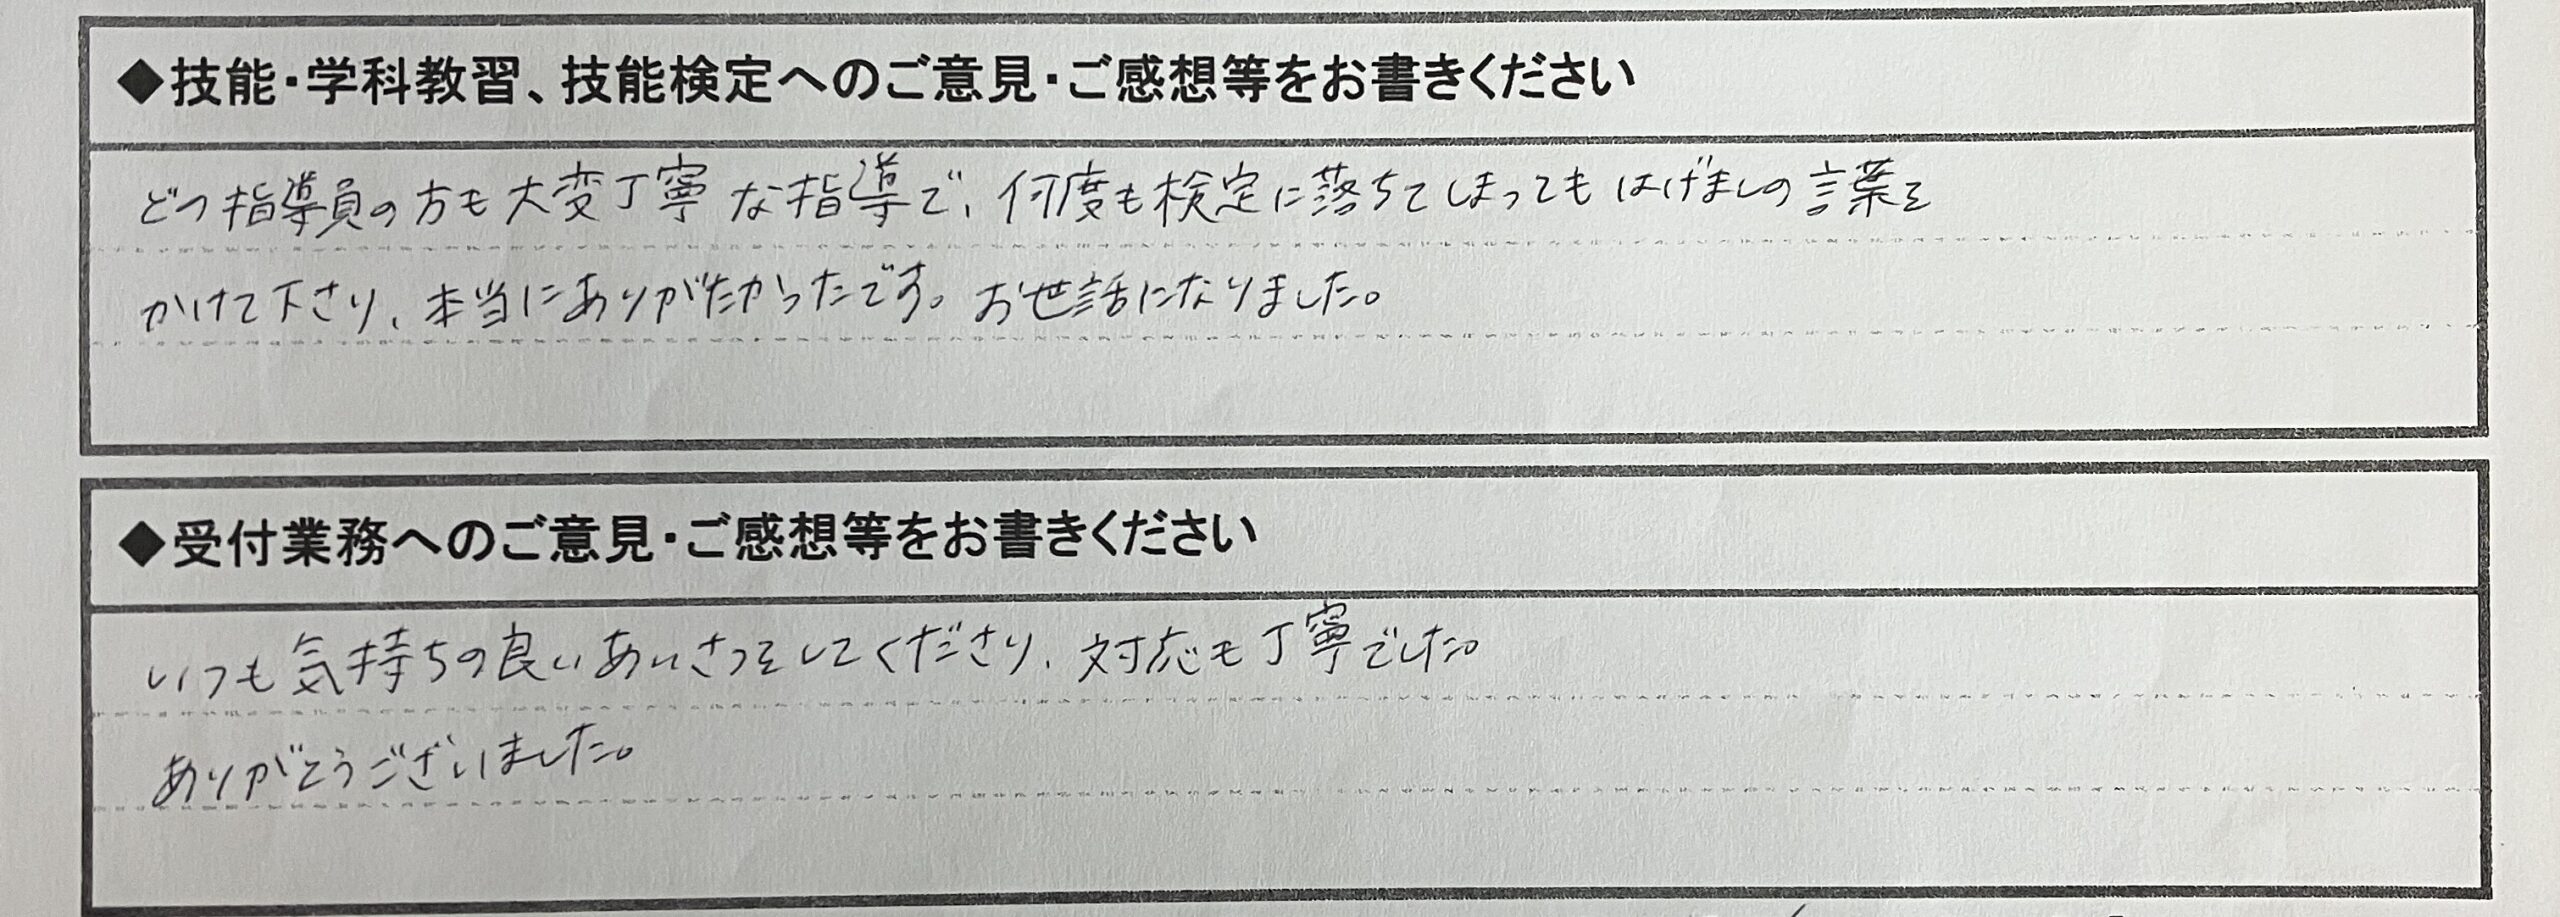 ◆技能・学科教習、技能検定へのご意見・ご感想等をお書きください
どの指導員の方も大変丁寧な指導で、何度も検定に落ちてしまってもはげましの言葉を
かけて下さり、本当にありがたかったです。お世話になりました。
◆受付業務へのご意見・ご感想等をお書きください
いつも気持ちの良いあいさつをしてくださり、対応も丁寧でした。
ありがとうございました。